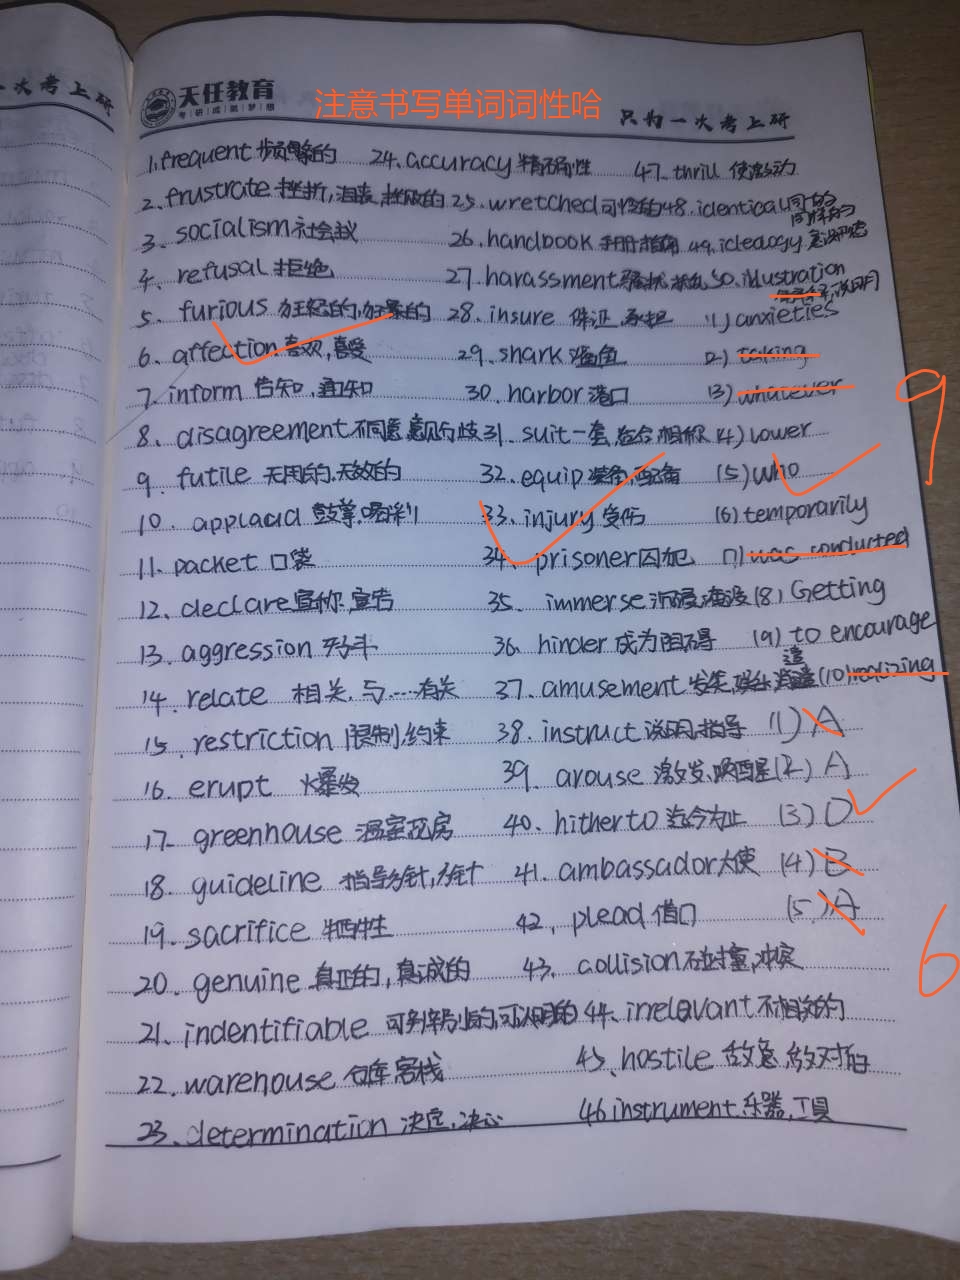 一次考上研
天任教育
考研成就梦想
注意书写单词词性哈
只为一次考上研
1. frequent 频繁的
2. frustrate 挫折,沮丧,挫败的
3. socialism 社会主义
4. refusal 拒绝
5. furious 狂怒的,狂暴的
6. affection 喜欢,喜爱
7. inform 告知,通知
8. disagreement 不同意,意见分歧
9. futile 无用的,无效的
10. applaad 鼓掌,喝彩
11. packet 口袋
12. declare 宣称,宣告
13. aggression
14. relate 相关,与……有关
15. restriction 限制,约束
16. erupt 爆发
17. greenhouse 温室花房
18. guideline 指导方针,方针
19. sacrifice 牺牲
20. genuine 真正的,真诚的
21. indentifiable 可辨别的,可认明的
22. warehouse 仓库 客栈
23. determination 决定,决心
24. accuracy 精确性
25. wretched 可怜的
26. handbook 手册 指南
27. harassment 骚扰
28. insure 保证,承担
29. shark 鲨鱼
30. harbor 港口
31. suit 一套,适合,相称
32. equip 装备,配备
33. injury 受伤
34. prisoner 囚犯
35. immerse 沉浸,淹没
36. hinder 成为阻碍
37. amusement 娱乐 消遣
38. instruct 说明,指导
39. arouse 激发,唤醒
40. hitherto 迄今为止
41. ambassador 大使
42. plead 借口
43. collision 碰撞,冲突
44. irrelevant 不相关的
45. hostile 敌意,敌对的
46 instrument 乐器,工具
47. thrill 使激动
48. identical 同一的 同样的
49. icleology 意识形态
50. illustration 说明
(1) anxieties
(2) taking
(3) whatever
(4) lower
(5) who
(6) temporarily
(7) was conducted
(8) Getting
(9) to encourage
(10) realizing
9
(1) A
(2) A
(3) D
(4) B
(5) A
6